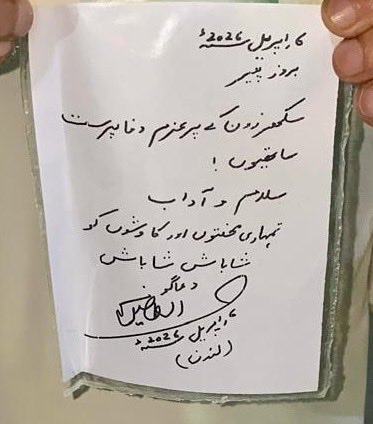 6 اپریل 2026ء
بروز پیر
سکھر زون کے پرعزم وفاپرست
ساتھیوں !
سلام و آداب
تمہاری محنتوں اور کاوشوں کو
شاباش شاباش
دعاگو
الطاف حسین
6 اپریل 2026ء
(لندن)